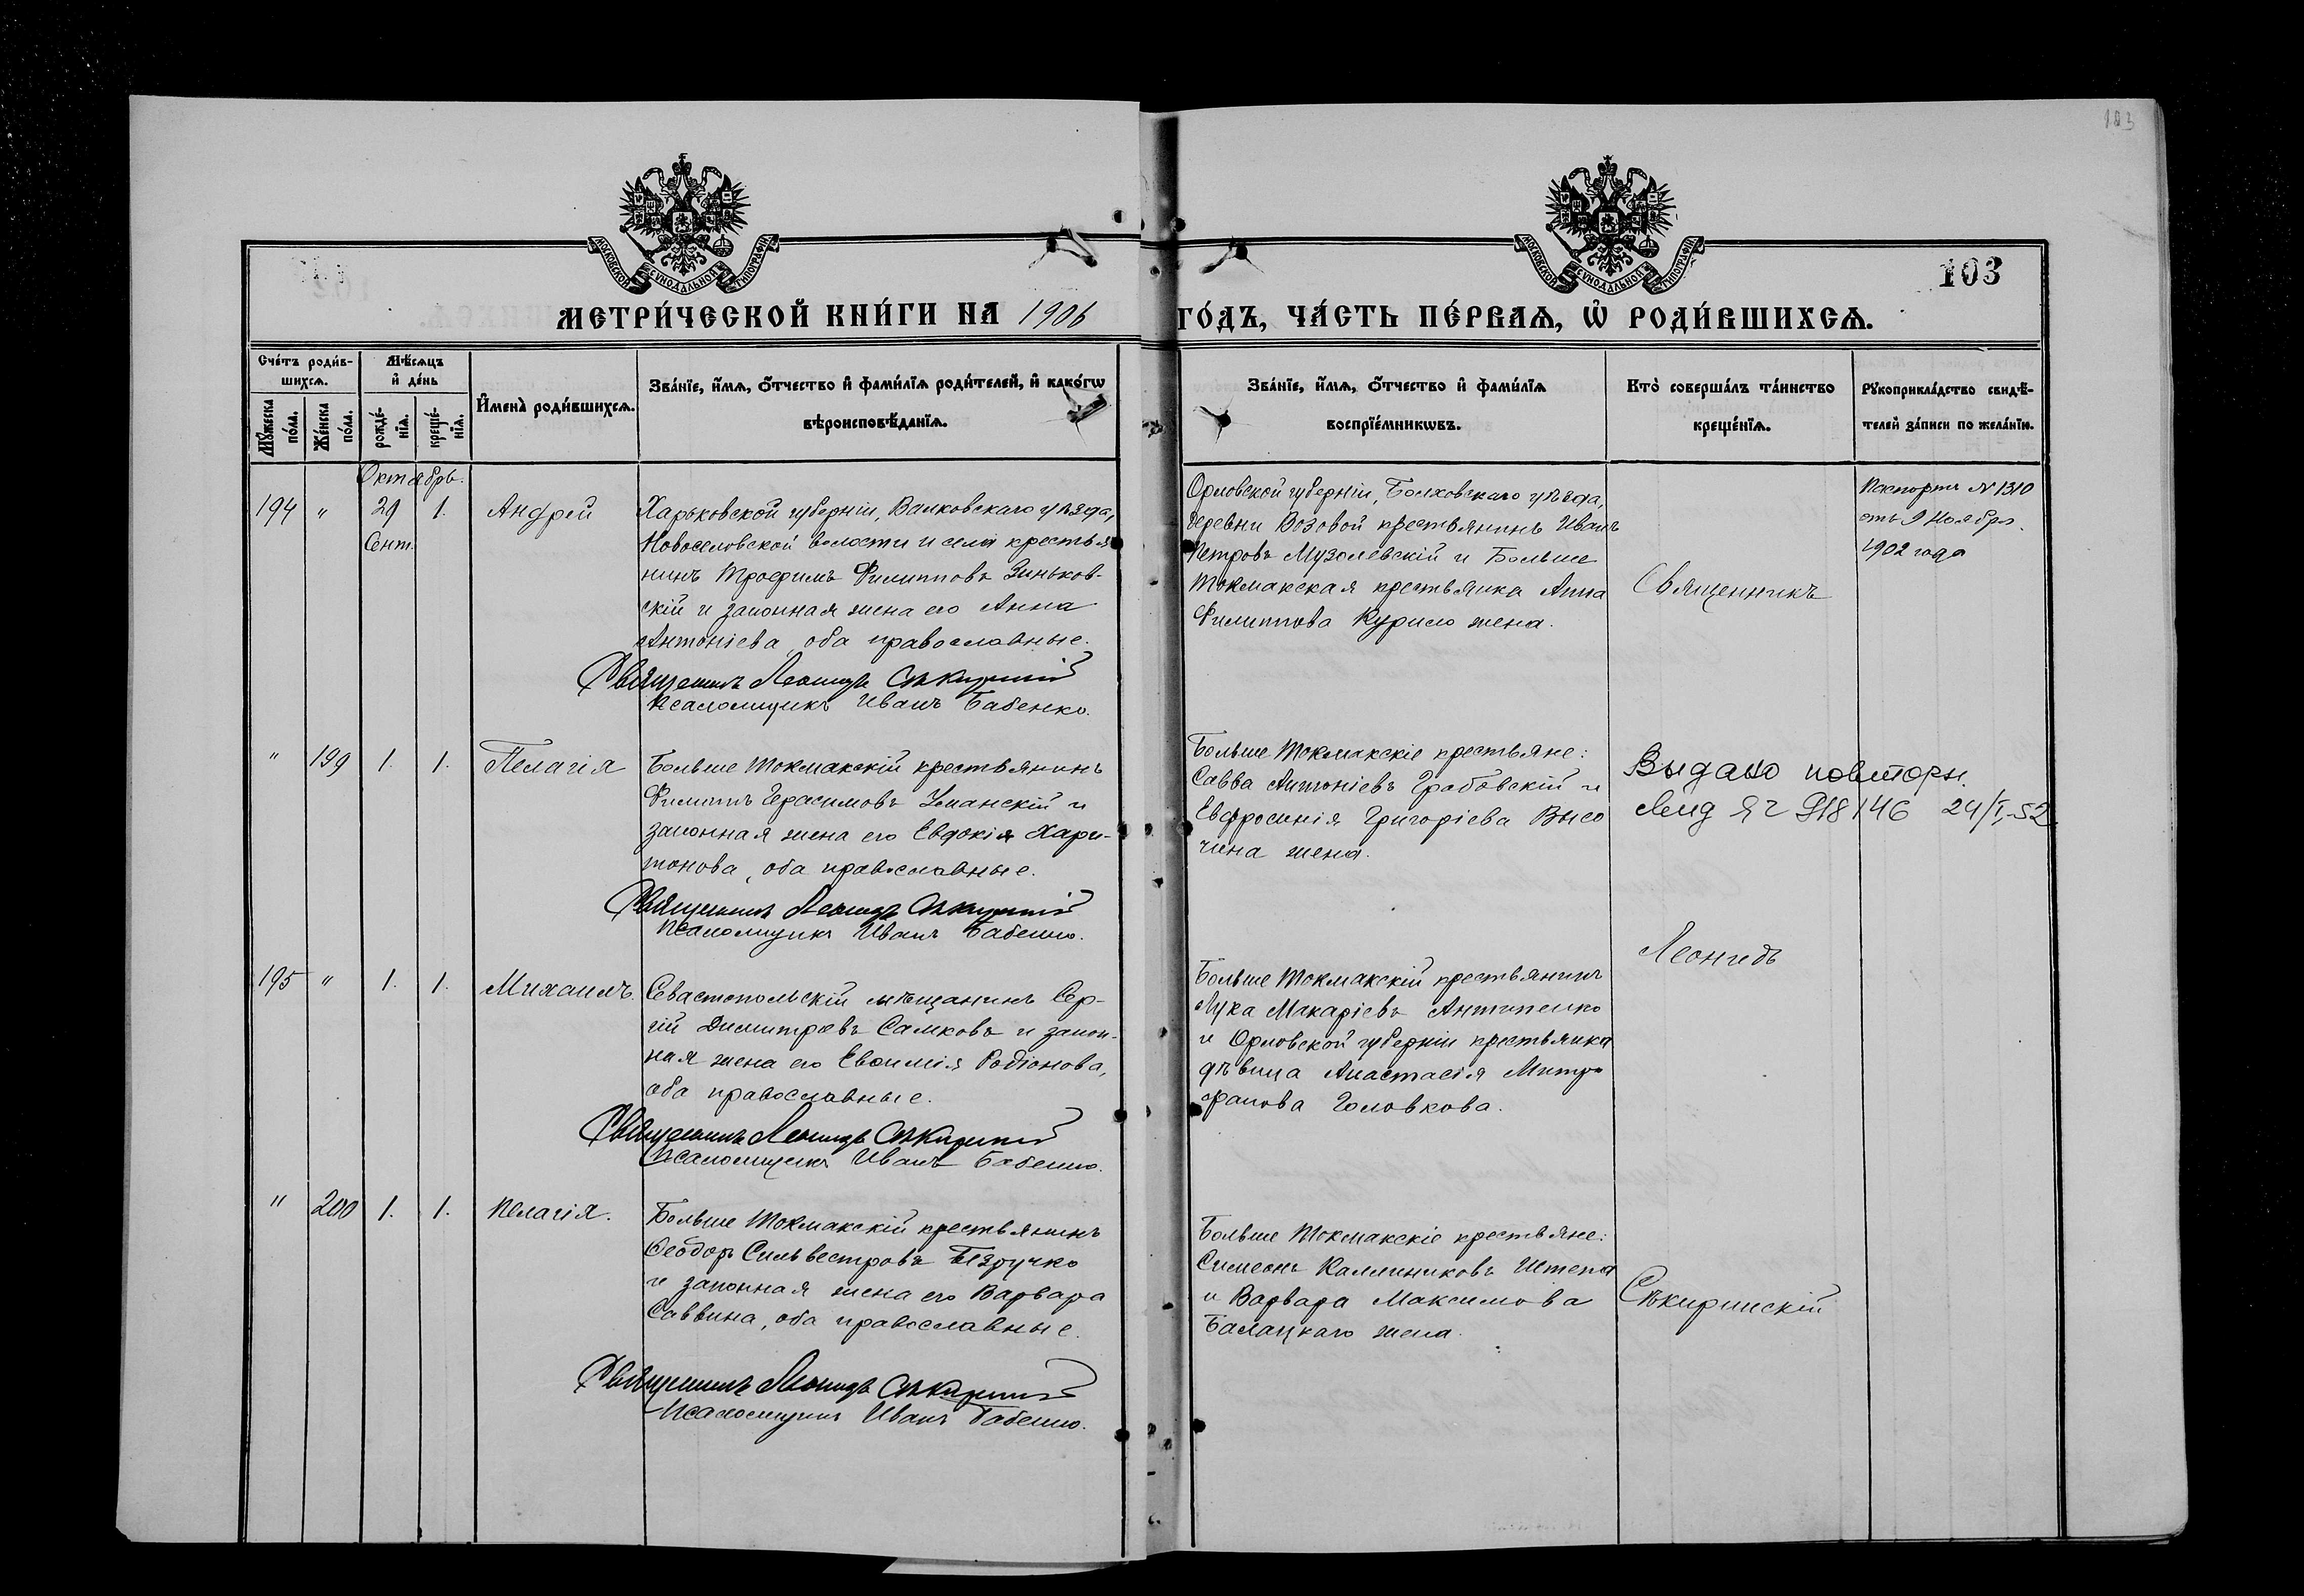 103
МОСКОВСКОЙ СѴНОДАЛЬНОЙ ТИПОГРАФІИ
МОСКОВСКОЙ СѴНОДАЛЬНОЙ ТИПОГРАФІИ
103
МЕТРИ́ЧЕСКОЙ КНИ́ГИ НА 1906 ГО́ДЪ, ЧА́СТЬ ПЕ́РВАѦ, Ѡ҆ РОДИ́ВШИХСѦ.
Сче́тъ роди́в-
шихсѧ.
Мꙋ́жеска по́ла.
Же́нска по́ла.
Мѣ́сѧцъ
и҆ де́нь
рожде́-
нїѧ.
креще́-
нїѧ.
И҆мена̀ роди́вшихсѧ.
Зва́нїе, и҆́мѧ, ѻ҆́тчество и҆ фами́лїѧ роди́телей, и҆ како́гѡ
вѣроисповѣ́данїѧ.
Зва́нїе, и҆́мѧ, ѻ҆́тчество и҆ фами́лїѧ
воспрїе́мникѡвъ.
Кто̀ соверша́лъ та́инство
креще́нїѧ.
Рꙋкоприкла́дство свидѣ́-
телей за́писи по жела́нїю.
Октябрь.
194 " 29 1. Андрей
Сент.
Харьковской губерніи, Валковскаго уѣзда,
Новоселовской волости и села крестья
нинъ Трофимъ Филипповъ Зиньков-
скій и законная жена его Анна
Антоніева, оба православные.
Священникъ Леонидъ Сѣкиринскій
Псаломщикъ Иванъ Бабенко.
Орловской губерніи, Болховскаго уѣзда,
деревни Возовой крестьянинъ Иванъ
Петровъ Музолевскій и Больше
Токмакская крестьянка Анна
Филиппова Курило жена.
Священникъ
Паспортъ N 1310
отъ 9 Ноября
1902 года
" 199 1. 1. Пелагія
Больше Токмакскій крестьянинъ
Филиппъ Герасимовъ Уманскій и
законная жена его Евдокія Хари-
тонова, оба православные.
Священникъ Леонидъ Сѣкиринскій
Псаломщикъ Иванъ Бабенко.
Больше Токмакскіе крестьяне:
Савва Антоніевъ Грабовскій и
Евфросинія Григоріева Высо
чина жена.
Выдано повторн.
918146 24/I-52
Леонидъ
195 " 1. 1. Михаилъ.
Севастопольскій мѣщанинъ Сер-
гій Димитріевъ Самковъ и закон-
ная жена его Евѳимія Родіонова,
оба православные.
Священникъ Леонидъ Сѣкиринскій
Псаломщикъ Иванъ Бабенко.
Больше Токмакскій крестьянинъ
Лука Макаріевъ Антипенко
и Орловской губерніи крестьянка
дѣвица Анастасія Митро
фанова Головкова.
" 200 1. 1. Пелагія.
Больше Токмакскій крестьянинъ
Ѳеодоръ Сильвестровъ Безручко
и законная жена его Варвара
Саввина, оба православные.
Священникъ Леонидъ Сѣкиринскій
Псаломщикъ Иванъ Бабенко.
Больше Токмакскіе крестьяне:
Симеонъ Каллиниковъ Штепа
и Варвара Максимова
Балацкаго жена.
Сѣкиринскій